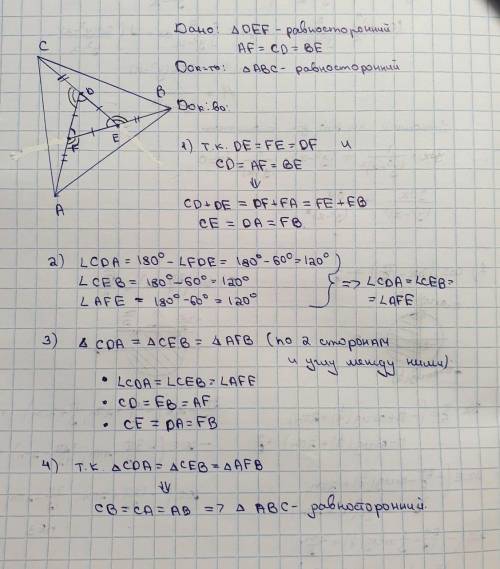 Дано: △DEF - равносторонний
AF = CD = BE
Док-ть: △ABC - равносторонний
Док-во:
C
D
B
E
F
A
1) т.к. DE = FE = DF и
CD = AF = BE
⇓
CD + DE = DF + FA = FE + EB
CE = DA = FB
2) ∠CDA = 180° - ∠FDE = 180° - 60° = 120°
∠CEB = 180° - 60° = 120°
∠AFE = 180° - 60° = 120°
} => ∠CDA = ∠CEB =
= ∠AFE
3) △CDA = △CEB = △AFB (по 2 сторонам
и углу между ними)
• ∠CDA = ∠CEB = ∠AFE
• CD = EB = AF
• CE = DA = FB
4) т.к. △CDA = △CEB = △AFB
⇓
CB = CA = AB => △ABC - равносторонний